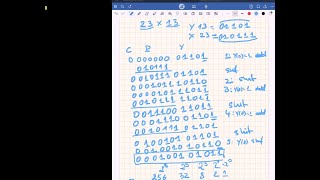 23 × 13
Y 13 = 01101
X 23 = 010111
C R Y
0 000000 01101
1: Y(0)=1 add
010111
0 010111 01101
shift
0 001011 10110
2: shift
0 000101 11011
3: Y(0)=1 add
010111
0 011100 11011
shift
0 001110 01101
4: Y(0)=1 add
010111
shift
0 100101 01101
0 010010 10110
5: Y(0) shift
0 001001 01011
256 32 8 2 1